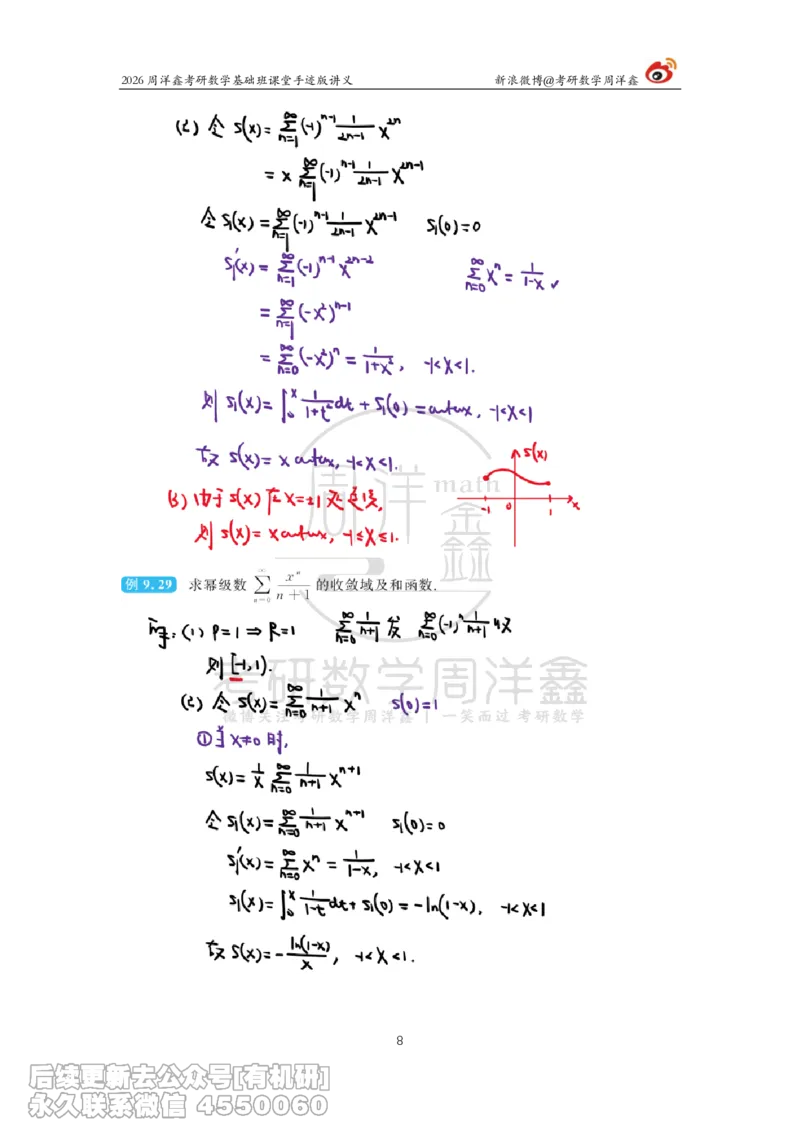 2026 周洋鑫考研数学基础班课堂手迹版讲义 新浪微博@考研数学周洋鑫
(2) 令 S(x)= ∑_{n=1}^{∞} (-1)^{n-1} \frac{1}{2n-1} x^{2n}
= x ∑_{n=1}^{∞} (-1)^{n-1} \frac{1}{2n-1} x^{2n-1}
令 S₁(x) = ∑_{n=1}^{∞} (-1)^{n-1} \frac{1}{2n-1} x^{2n-1} S₁(0)=0
S₁'(x) = ∑_{n=1}^{∞} (-1)^{n-1} x^{2n-2} ∑_{n=0}^{∞} x^n = \frac{1}{1-x} ✓
= ∑_{n=1}^{∞} (-x²)^{n-1}
= ∑_{n=0}^{∞} (-x²)^n = \frac{1}{1+x²}, -1<x<1.
则 S₁(x) = ∫_0^x \frac{1}{1+t²} dt + S₁(0) = arctanx, -1<x<1
故 S(x) = x arctanx, -1<x<1.
S(x)
-1 0 1 x
(3) 由于 S(x) 在 x=±1 处连续,
则 S(x) = x arctanx, -1≤x≤1.
例 9.29 求幂级数 ∑_{n=0}^{∞} \frac{x^n}{n+1} 的收敛域及和函数.
解: (1) ρ=1 ⇒ R=1 ∑_{n=0}^{∞} \frac{1}{n+1} 发 ∑_{n=0}^{∞} (-1)^n \frac{1}{n+1} 收
则 [-1,1).
(2) 令 S(x) = ∑_{n=0}^{∞} \frac{1}{n+1} x^n S(0)=1
① 当 x≠0 时,
S(x) = \frac{1}{x} ∑_{n=0}^{∞} \frac{1}{n+1} x^{n+1}
令 S₁(x) = ∑_{n=0}^{∞} \frac{1}{n+1} x^{n+1} S₁(0)=0
S₁'(x) = ∑_{n=0}^{∞} x^n = \frac{1}{1-x}, -1<x<1
S₁(x) = ∫_0^x \frac{1}{1-t} dt + S₁(0) = -ln(1-x), -1<x<1
故 S(x) = -\frac{ln(1-x)}{x}, -1<x<1.
周洋鑫
math
考研数学周洋鑫
微博关注考研数学周洋鑫 | 一笑而过 考研数学
8
后续更新去公众号[有机研]
永久联系微信 4550060